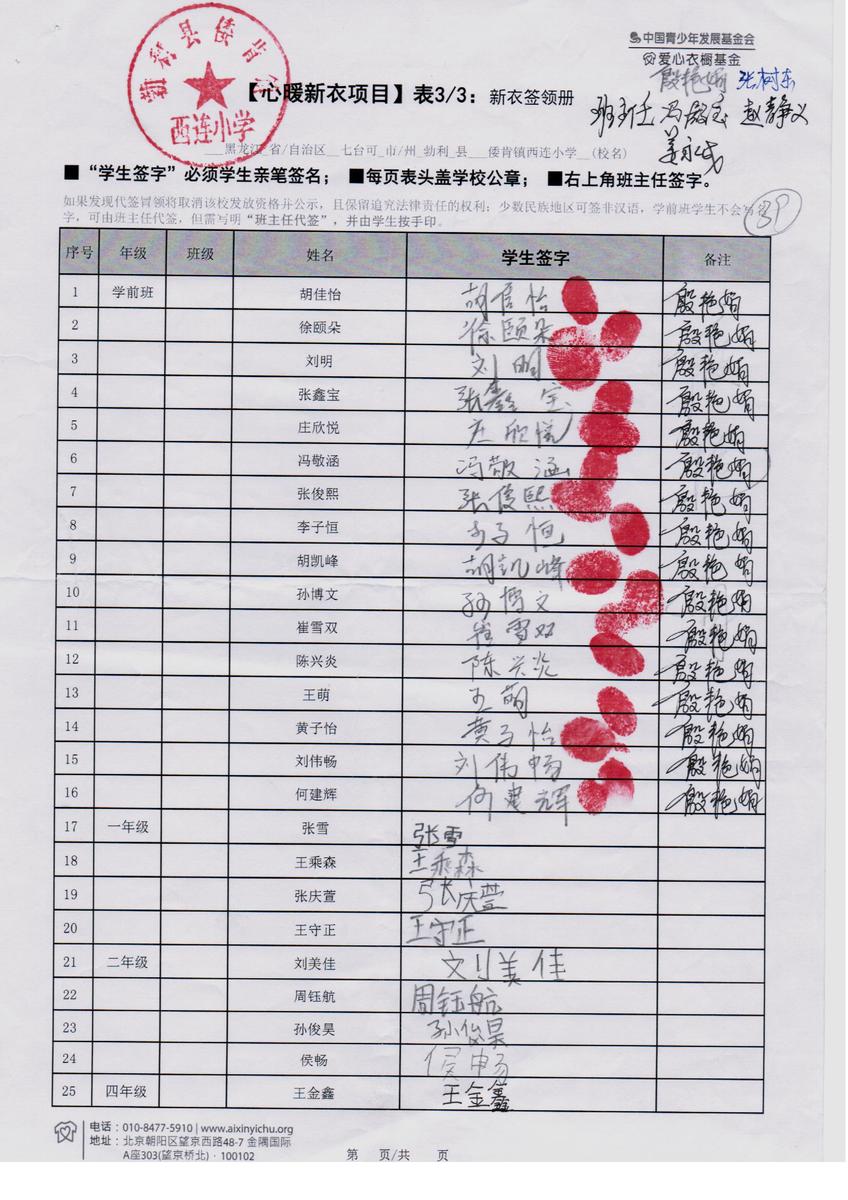 中国青少年发展基金会
爱心衣橱基金
新利县倭肯镇
西连小学
殷艳娟 张树东
班主任 冯殿宝 赵静义
【心暖新衣项目】表3/3：新衣签领册
黑龙江_省/自治区__七台可_市/州_勃利_县___倭肯镇西连小学__(校名)
■“学生签字”必须学生亲笔签名； ■每页表头盖学校公章； ■右上角班主任签字。
如果发现代签冒领将取消该校发放资格并公示，且保留追究法律责任的权利；少数民族地区可签非汉语，学前班学生不会写
字，可由班主任代签，但需写明“班主任代签”，并由学生按手印。
序号 年级 班级 姓名 学生签字 备注
1 学前班 胡佳怡 胡佳怡 殷艳娟
2 徐颐朵 徐颐朵 殷艳娟
3 刘明 刘明 殷艳娟
4 张鑫宝 张鑫宝 殷艳娟
5 庄欣悦 庄欣悦 殷艳娟
6 冯敬涵 冯敬涵 殷艳娟
7 张俊熙 张俊熙 殷艳娟
8 李子恒 李子恒 殷艳娟
9 胡凯峰 胡凯峰 殷艳娟
10 孙博文 孙博文 殷艳娟
11 崔雪双 崔雪双 殷艳娟
12 陈兴炎 陈兴炎 殷艳娟
13 王萌 王萌 殷艳娟
14 黄子怡 黄子怡 殷艳娟
15 刘伟畅 刘伟畅 殷艳娟
16 何建辉 何建辉 殷艳娟
17 一年级 张雪 张雪
18 王乘森 王乘森
19 张庆萱 张庆萱
20 王守正 王守正
21 二年级 刘美佳 刘美佳
22 周钰航 周钰航
23 孙俊昊 孙俊昊
24 侯畅 侯畅
25 四年级 王金鑫 王金鑫
电话：010-8477-5910 | www.aixinyichu.org
地址：北京朝阳区望京西路48-7 金隅国际
A座303(望京桥北)·100102
第 页/共 页